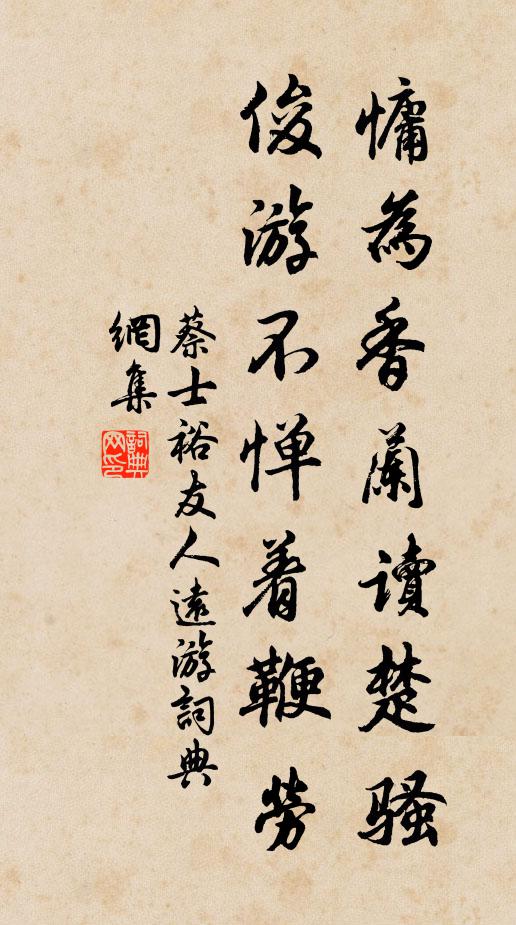 慵為香蘭讀楚骚
俊游不惮着鞭勞
蔡士裕友人遠游詞典
網集
詞典网印